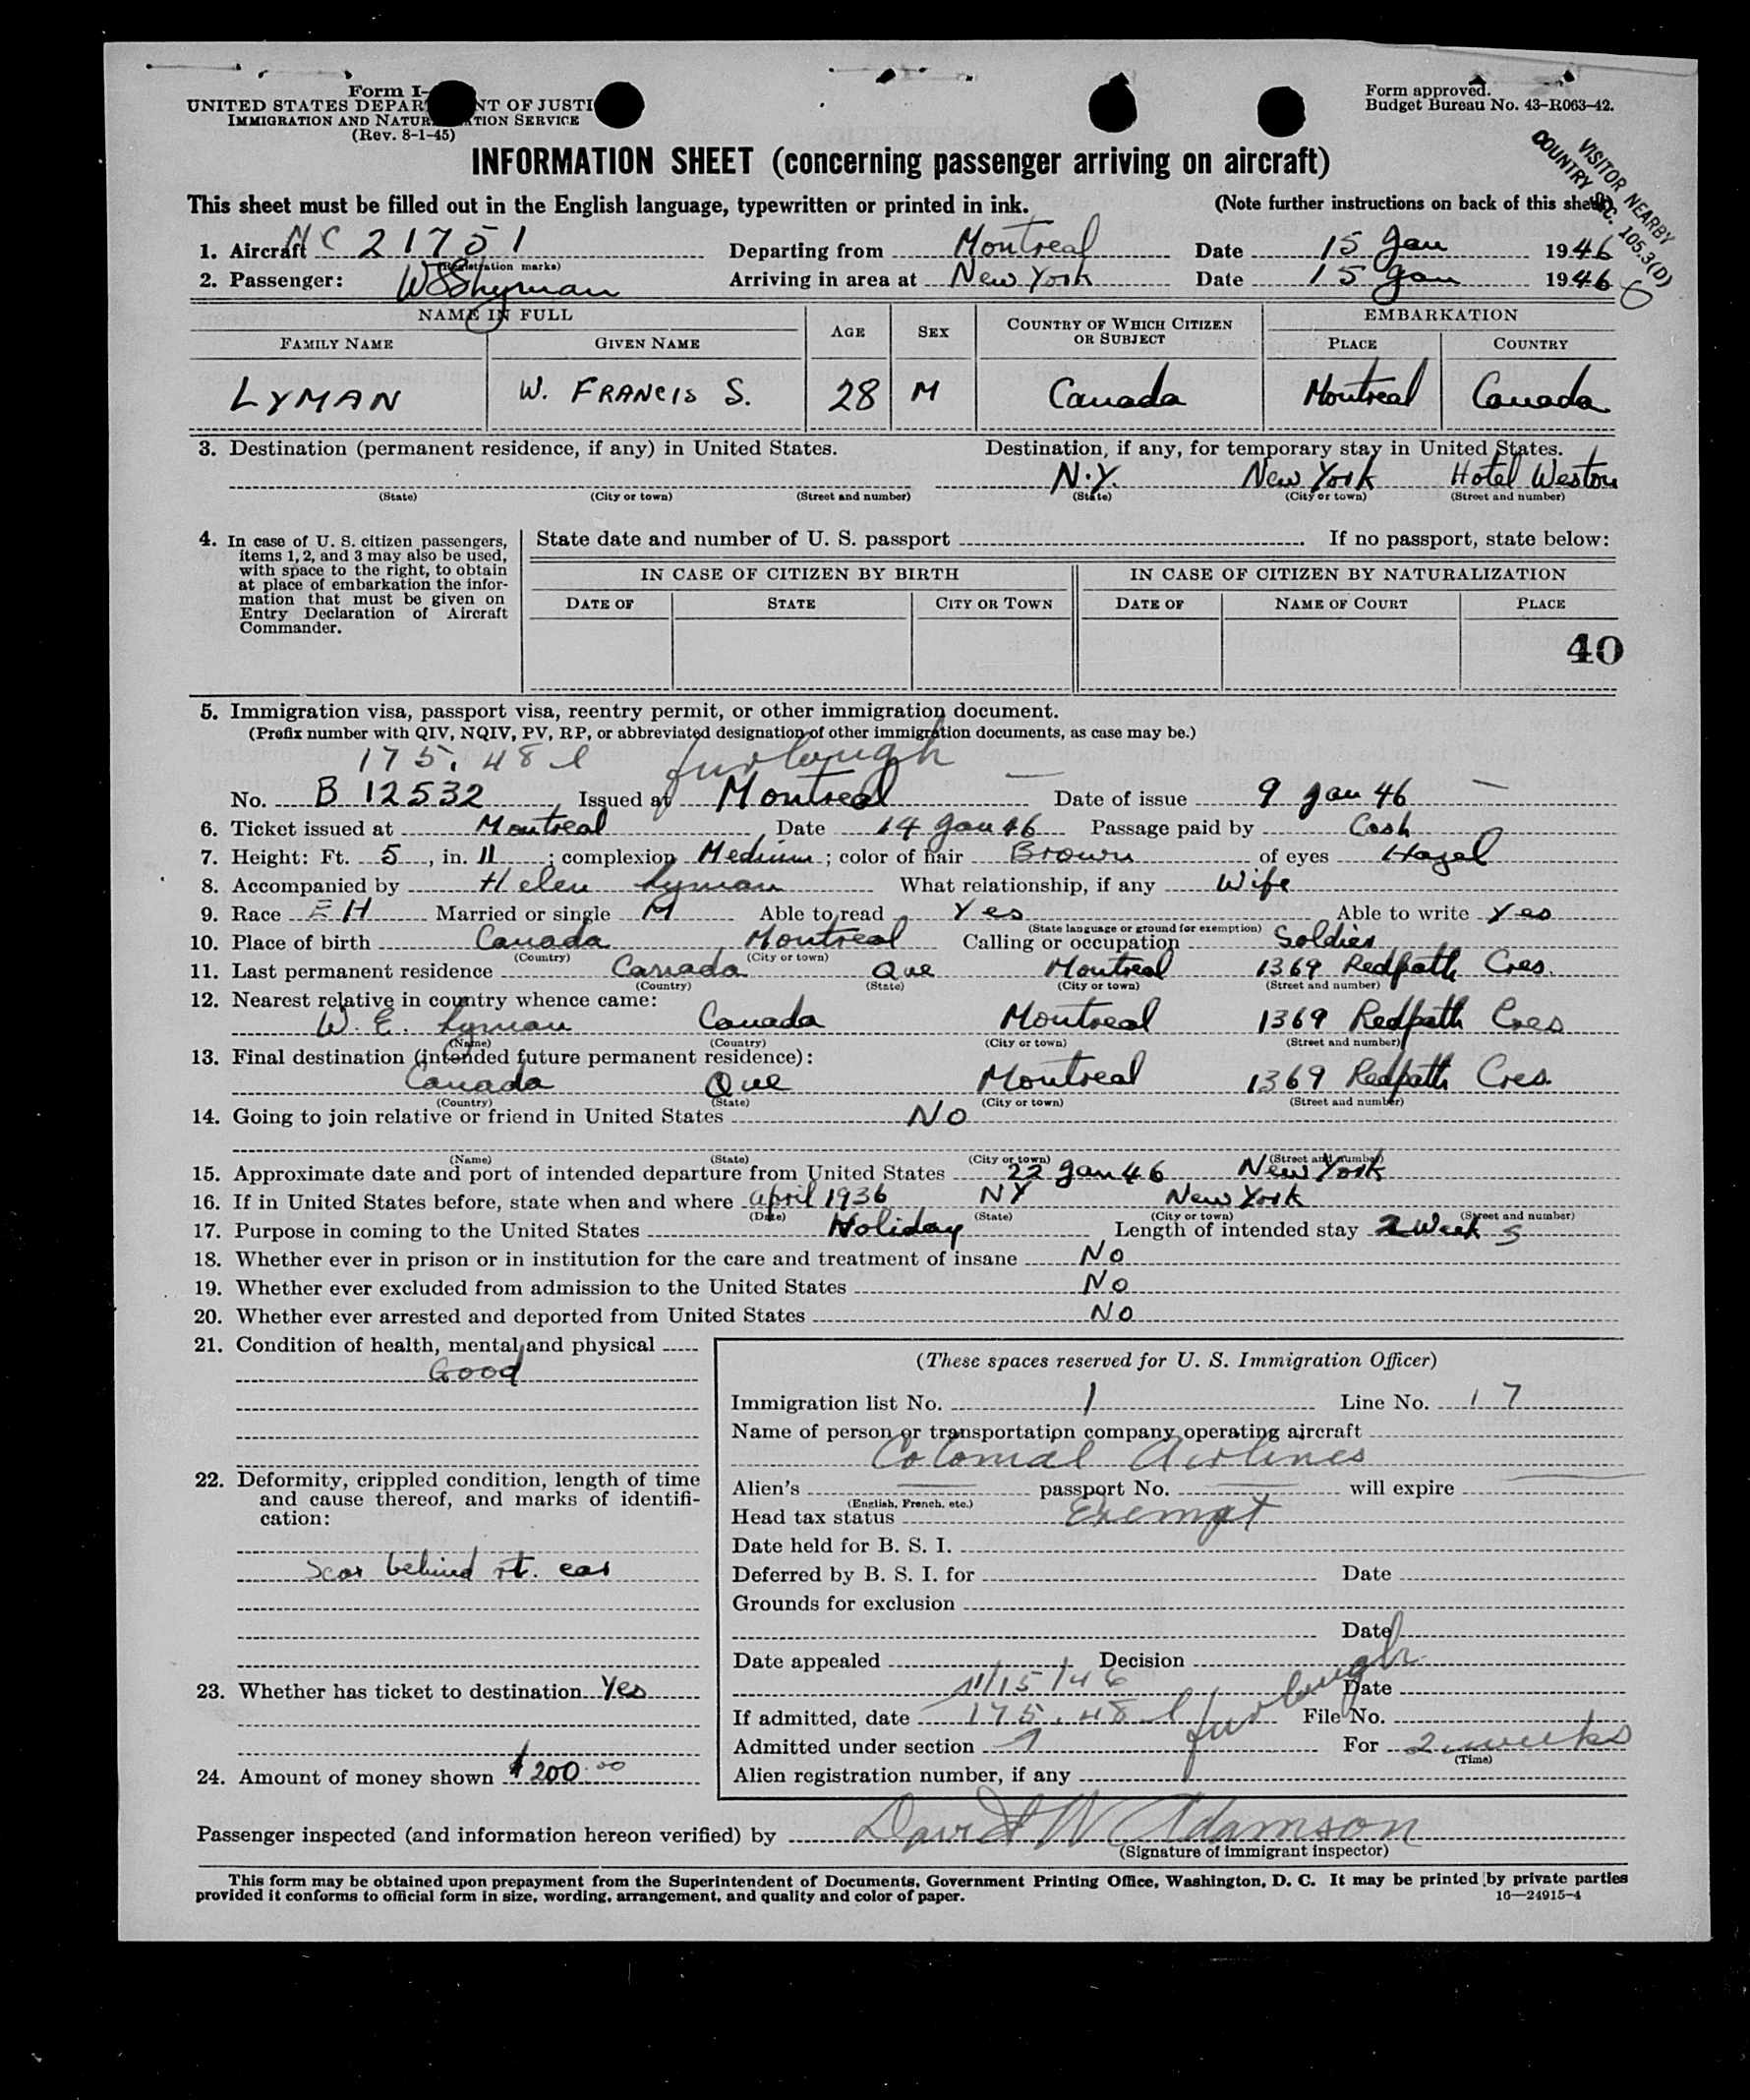 Form I-
UNITED STATES DEPAR NT OF JUSTI
IMMIGRATION AND NATUR TION SERVICE
(Rev. 8-1-45)
Form approved.
Budget Bureau No. 43-R063-42.
VISITOR NEARBY
COUNTRY SEC. 105.3(D)
INFORMATION SHEET (concerning passenger arriving on aircraft)
This sheet must be filled out in the English language, typewritten or printed in ink. (Note further instructions on back of this sheet)
1. Aircraft NC 21751 Departing from Montreal Date 15 Jan 1946
(Registration marks)
2. Passenger: WFSLyman Arriving in area at New York Date 15 Jan 1946
NAME IN FULL AGE SEX COUNTRY OF WHICH CITIZEN OR SUBJECT EMBARKATION
FAMILY NAME GIVEN NAME PLACE COUNTRY
LYMAN W. FRANCIS S. 28 M Canada Montreal Canada
3. Destination (permanent residence, if any) in United States. Destination, if any, for temporary stay in United States.
N.Y. New York Hotel Weston
(State) (City or town) (Street and number) (State) (City or town) (Street and number)
4. In case of U. S. citizen passengers,
items 1, 2, and 3 may also be used,
with space to the right, to obtain
at place of embarkation the infor-
mation that must be given on
Entry Declaration of Aircraft
Commander.
State date and number of U. S. passport If no passport, state below:
IN CASE OF CITIZEN BY BIRTH IN CASE OF CITIZEN BY NATURALIZATION
DATE OF STATE CITY OR TOWN DATE OF NAME OF COURT PLACE
40
5. Immigration visa, passport visa, reentry permit, or other immigration document.
(Prefix number with QIV, NQIV, PV, RP, or abbreviated designation of other immigration documents, as case may be.)
175.48 l furlough
No. B 12532 Issued at Montreal Date of issue 9 Jan 46
6. Ticket issued at Montreal Date 14 Jan 46 Passage paid by Cash
7. Height: Ft. 5, in. 11; complexion Medium; color of hair Brown of eyes Hazel
8. Accompanied by Helen Lyman What relationship, if any Wife
9. Race EH Married or single M Able to read Yes Able to write Yes
(State language or ground for exemption)
10. Place of birth Canada Montreal Calling or occupation Soldier
(Country) (City or town)
11. Last permanent residence Canada Que Montreal 1369 Redpath Cres.
(Country) (State) (City or town) (Street and number)
12. Nearest relative in country whence came:
W. E. Lyman Canada Montreal 1369 Redpath Cres
(Name) (Country) (City or town) (Street and number)
13. Final destination (intended future permanent residence):
Canada Que Montreal 1369 Redpath Cres.
(Country) (State) (City or town) (Street and number)
14. Going to join relative or friend in United States No
(Name) (State) (City or town) (Street and number)
15. Approximate date and port of intended departure from United States 22 Jan 46 New York
16. If in United States before, state when and where April 1936 NY New York
(Date) (State) (City or town) (Street and number)
17. Purpose in coming to the United States Holiday Length of intended stay 2 Weeks
18. Whether ever in prison or in institution for the care and treatment of insane No
19. Whether ever excluded from admission to the United States No
20. Whether ever arrested and deported from United States No
21. Condition of health, mental and physical
Good
22. Deformity, crippled condition, length of time
and cause thereof, and marks of identifi-
cation:
Scar behind rt. ear
23. Whether has ticket to destination Yes
24. Amount of money shown $200.00
(These spaces reserved for U. S. Immigration Officer)
Immigration list No. 1 Line No. 17
Name of person or transportation company operating aircraft
Colonial Airlines
Alien's passport No. will expire
(English, French, etc.)
Head tax status Exempt
Date held for B. S. I.
Deferred by B. S. I. for Date
Grounds for exclusion
Date
Date appealed Decision
1/15/46 Date
If admitted, date 175.48 l furlough File No.
Admitted under section For 2 weeks
(Time)
Alien registration number, if any
Passenger inspected (and information hereon verified) by David W Adamson
(Signature of immigrant inspector)
This form may be obtained upon prepayment from the Superintendent of Documents, Government Printing Office, Washington, D. C. It may be printed by private parties
provided it conforms to official form in size, wording, arrangement, and quality and color of paper. 16—24915-4